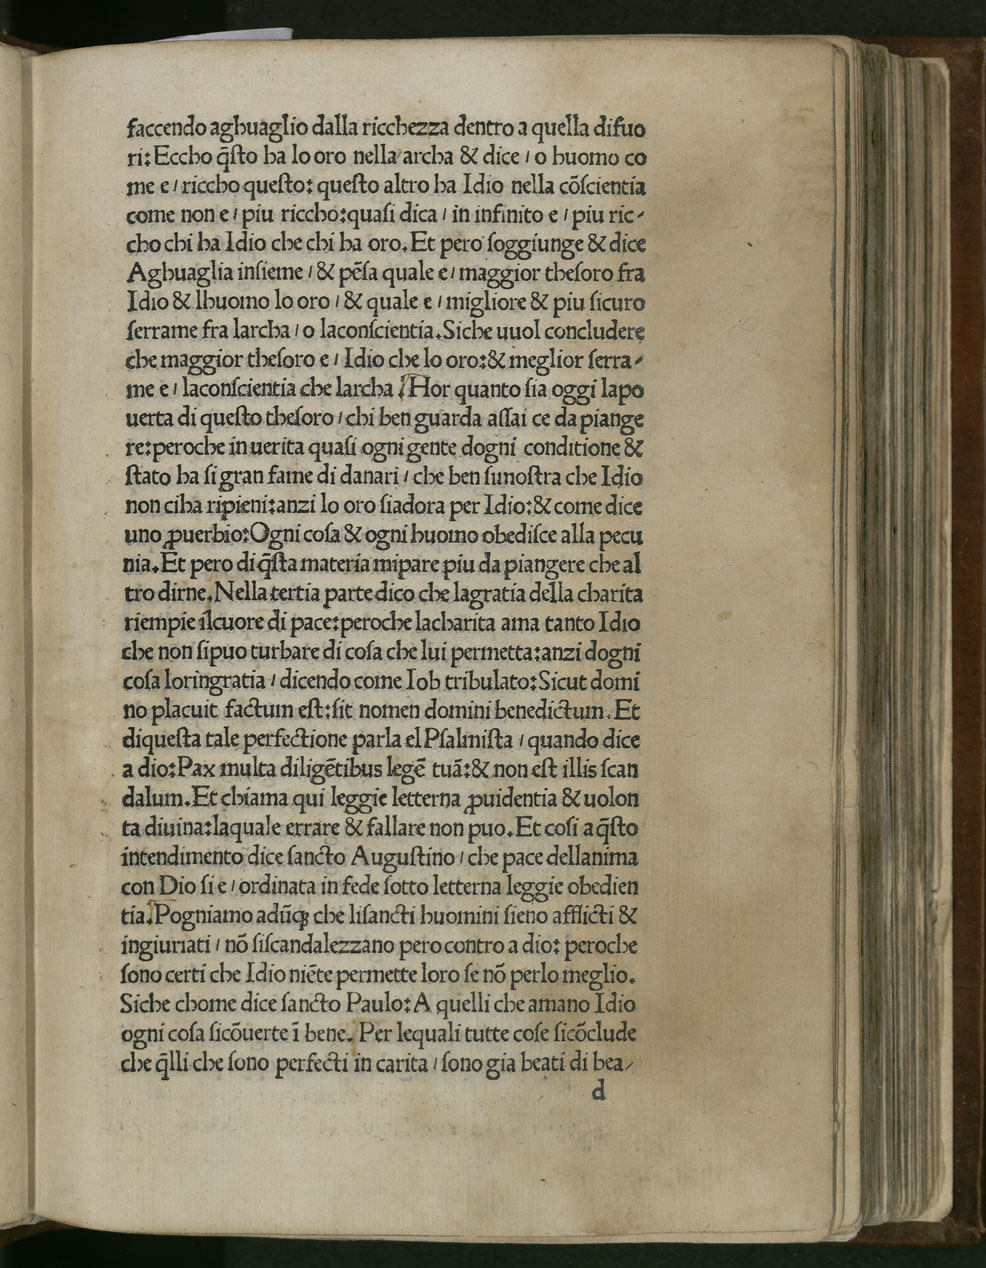 faccendo aghuaglio dalla ricchezza dentro a quella difuo
ri: Eccho q̃ſto ha lo oro nella archa & dice / o huomo co
me e / riccho queſto: queſto altro ha Idio nella cõſcientia
come non e / piu riccho: quaſi dica / in infinito e / piu ric⸗
cho chi ha Idio che chi ha oro. Et pero ſoggiunge & dice
Aghuaglia inſieme / & pẽſa quale e / maggior theſoro fra
Idio & lhuomo lo oro / & quale e / migliore & piu ſicuro
ſerrame fra larcha / o laconſcientia. Siche uuol concludere
che maggior theſoro e / Idio che lo oro: & meglior ſerra⸗
me e / laconſcientia che larcha / Hor quanto ſia oggi lapo
uerta di queſto theſoro / chi ben guarda aſſai ce da piange
re: peroche in uerita quaſi ogni gente dogni conditione &
ſtato ha ſi gran fame di danari / che ben ſimoſtra che Idio
non ciba ripieni: anzi lo oro ſiadora per Idio: & come dice
uno ꝓuerbio: Ogni coſa & ogni huomo obediſce alla pecu
nia. Et pero di q̃ſta materia mipare piu da piangere che al
tro dirne. Nella tertia parte dico che lagratia della charita
riempie ilcuore di pace: peroche lacharita ama tanto Idio
che non ſipuo turbare di coſa che lui permetta: anzi dogni
coſa loringratia / dicendo come Iob tribulato: Sicut domi
no placuit factum eſt: ſit nomen domini benedictum. Et
diqueſta tale perfectione parla el Pſalmiſta / quando dice
a dio: Pax multa diligẽtibus legẽ tuã: & non eſt illis ſcan
dalum. Et chiama qui leggie letterna ꝓuidentia & uolon
ta diuina: laquale errare & fallare non puo. Et coſi a q̃ſto
intendimento dice ſancto Auguſtino / che pace dellanima
con Dio ſi e / ordinata in fede ſotto letterna leggie obedien
tia. Pogniamo adũq; che liſancti huomini ſieno afflicti &
ingiuriati / nõ ſiſcandalezzano pero contro a dio: peroche
ſono certi che Idio niẽte permette loro ſe nõ perlo meglio.
Siche chome dice ſancto Paulo: A quelli che amano Idio
ogni coſa ſicõuerte ĩ bene. Per lequali tutte coſe ſicõclude
che q̃lli che ſono perfecti in carita / ſono gia beati di bea⸗
d